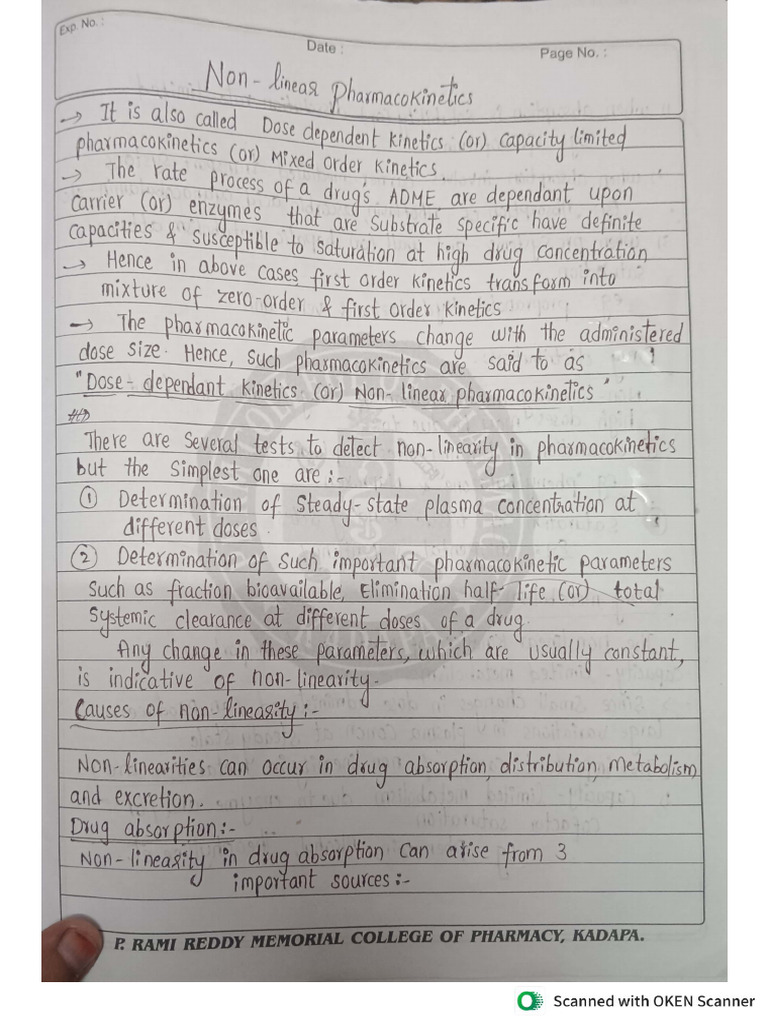 Exp. No. :
Date :
Page No. :
Non-linear Pharmacokinetics
→ It is also called Dose dependent kinetics (or) capacity limited
pharmacokinetics (or) Mixed order kinetics.
→ The rate process of a drug's ADME are dependant upon
carrier (or) enzymes that are substrate specific have definite
capacities & susceptible to saturation at high drug concentration
→ Hence in above cases first order kinetics transform into
mixture of zero-order & first order kinetics
→ The pharmacokinetic parameters change with the administered
dose size. Hence, such pharmacokinetics are said to as
"Dose-dependant kinetics (or) Non-linear pharmacokinetics"
There are several tests to detect non-linearity in pharmacokinetics
but the simplest one are :-
① Determination of steady-state plasma concentration at
different doses.
② Determination of such important pharmacokinetic parameters
such as fraction bioavailable, Elimination half-life (or) total
systemic clearance at different doses of a drug.
Any change in these parameters, which are usually constant,
is indicative of non-linearity.
Causes of non-linearity :-
Non-linearities can occur in drug absorption, distribution, metabolism
and excretion.
Drug absorption:-
Non-linearity in drug absorption can arise from 3
important sources :-
P. RAMI REDDY MEMORIAL COLLEGE OF PHARMACY, KADAPA.
Scanned with OKEN Scanner